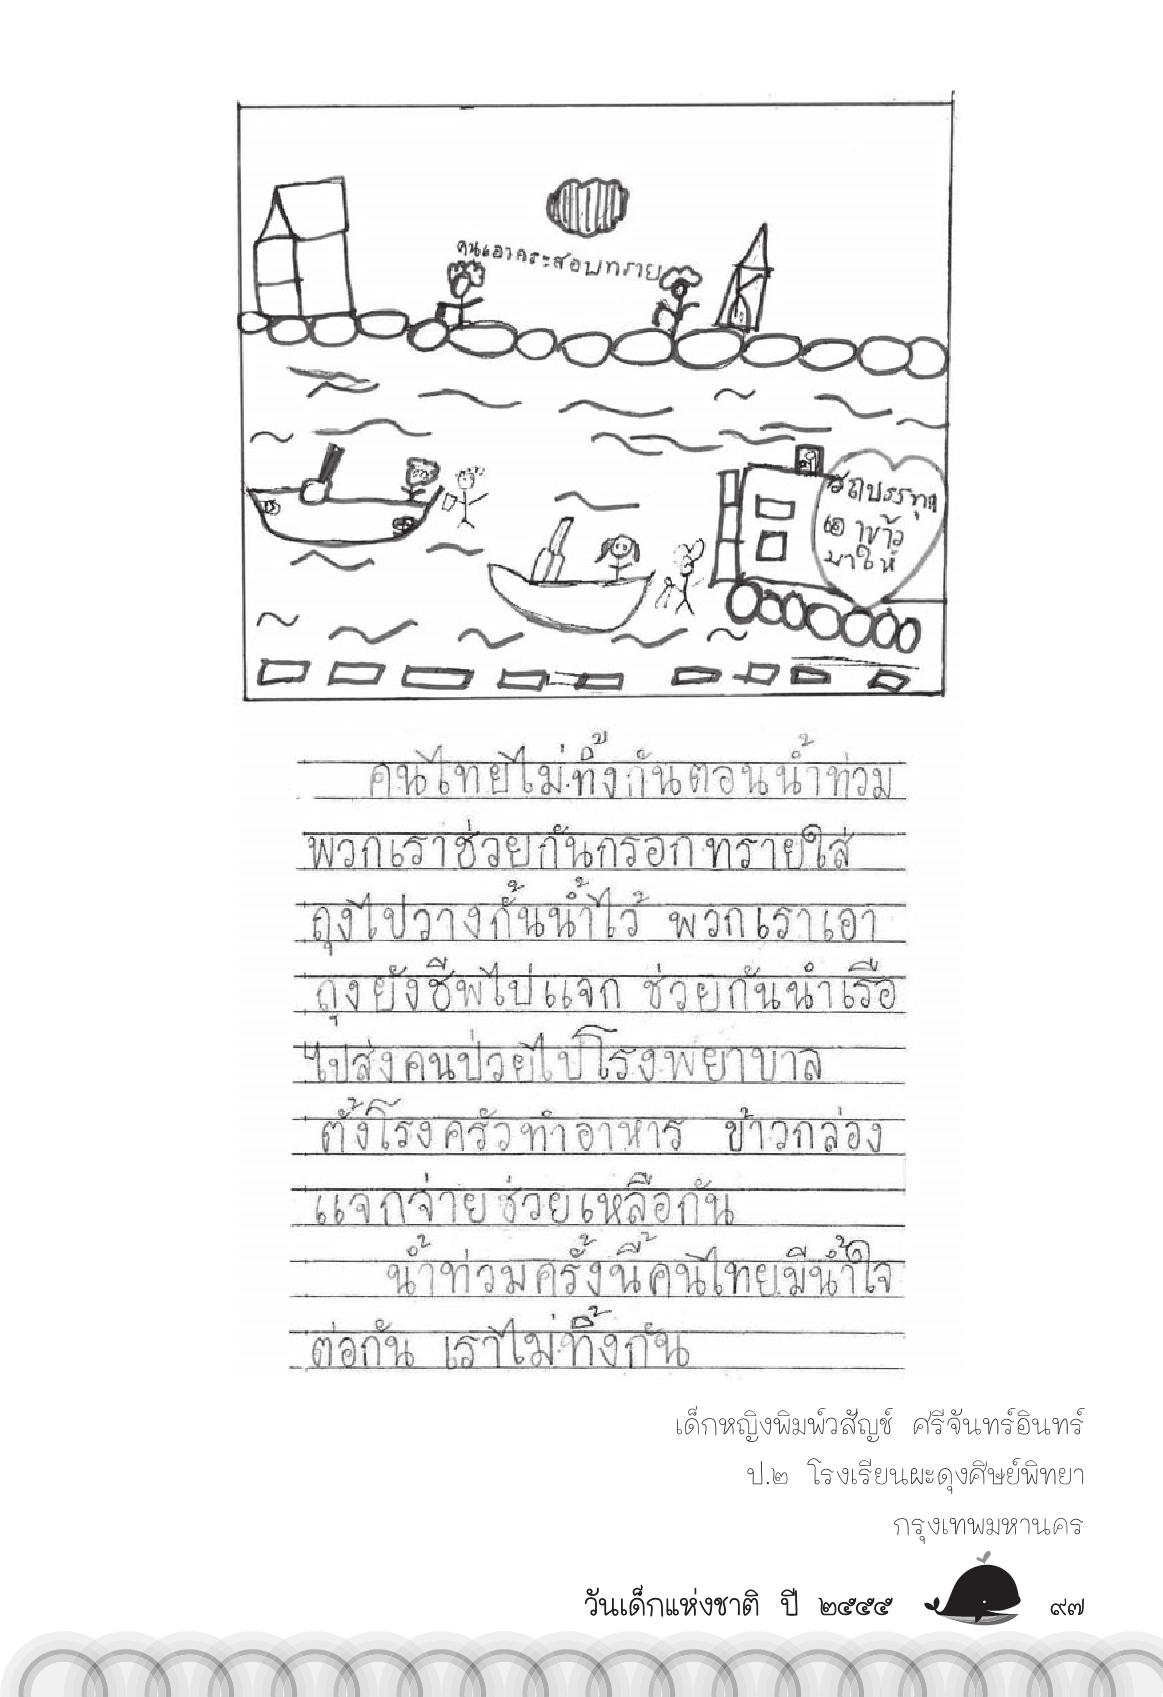 คนเอากระสอบทราย
รถบรรทุก
เอาข้าว
มาให้
คนไทยไม่ทิ้งกันตอนน้ำท่วม
พวกเราช่วยกันกรอกทรายใส่
ถุงไปวางกั้นน้ำไว้ พวกเราเอา
ถุงยังชีพไปแจก ช่วยกันนำเรือ
ไปส่งคนป่วยไปโรงพยาบาล
ตั้งโรงครัวทำอาหาร ข้าวกล่อง
แจกจ่ายช่วยเหลือกัน
น้ำท่วมครั้งนี้คนไทยมีน้ำใจ
ต่อกัน เราไม่ทิ้งกัน
เด็กหญิงพิมพ์วสัญช์ ศรีจันทร์อินทร์
ป.๒ โรงเรียนผะดุงศิษย์พิทยา
กรุงเทพมหานคร
วันเด็กแห่งชาติ ปี ๒๕๕๕ ๙๗